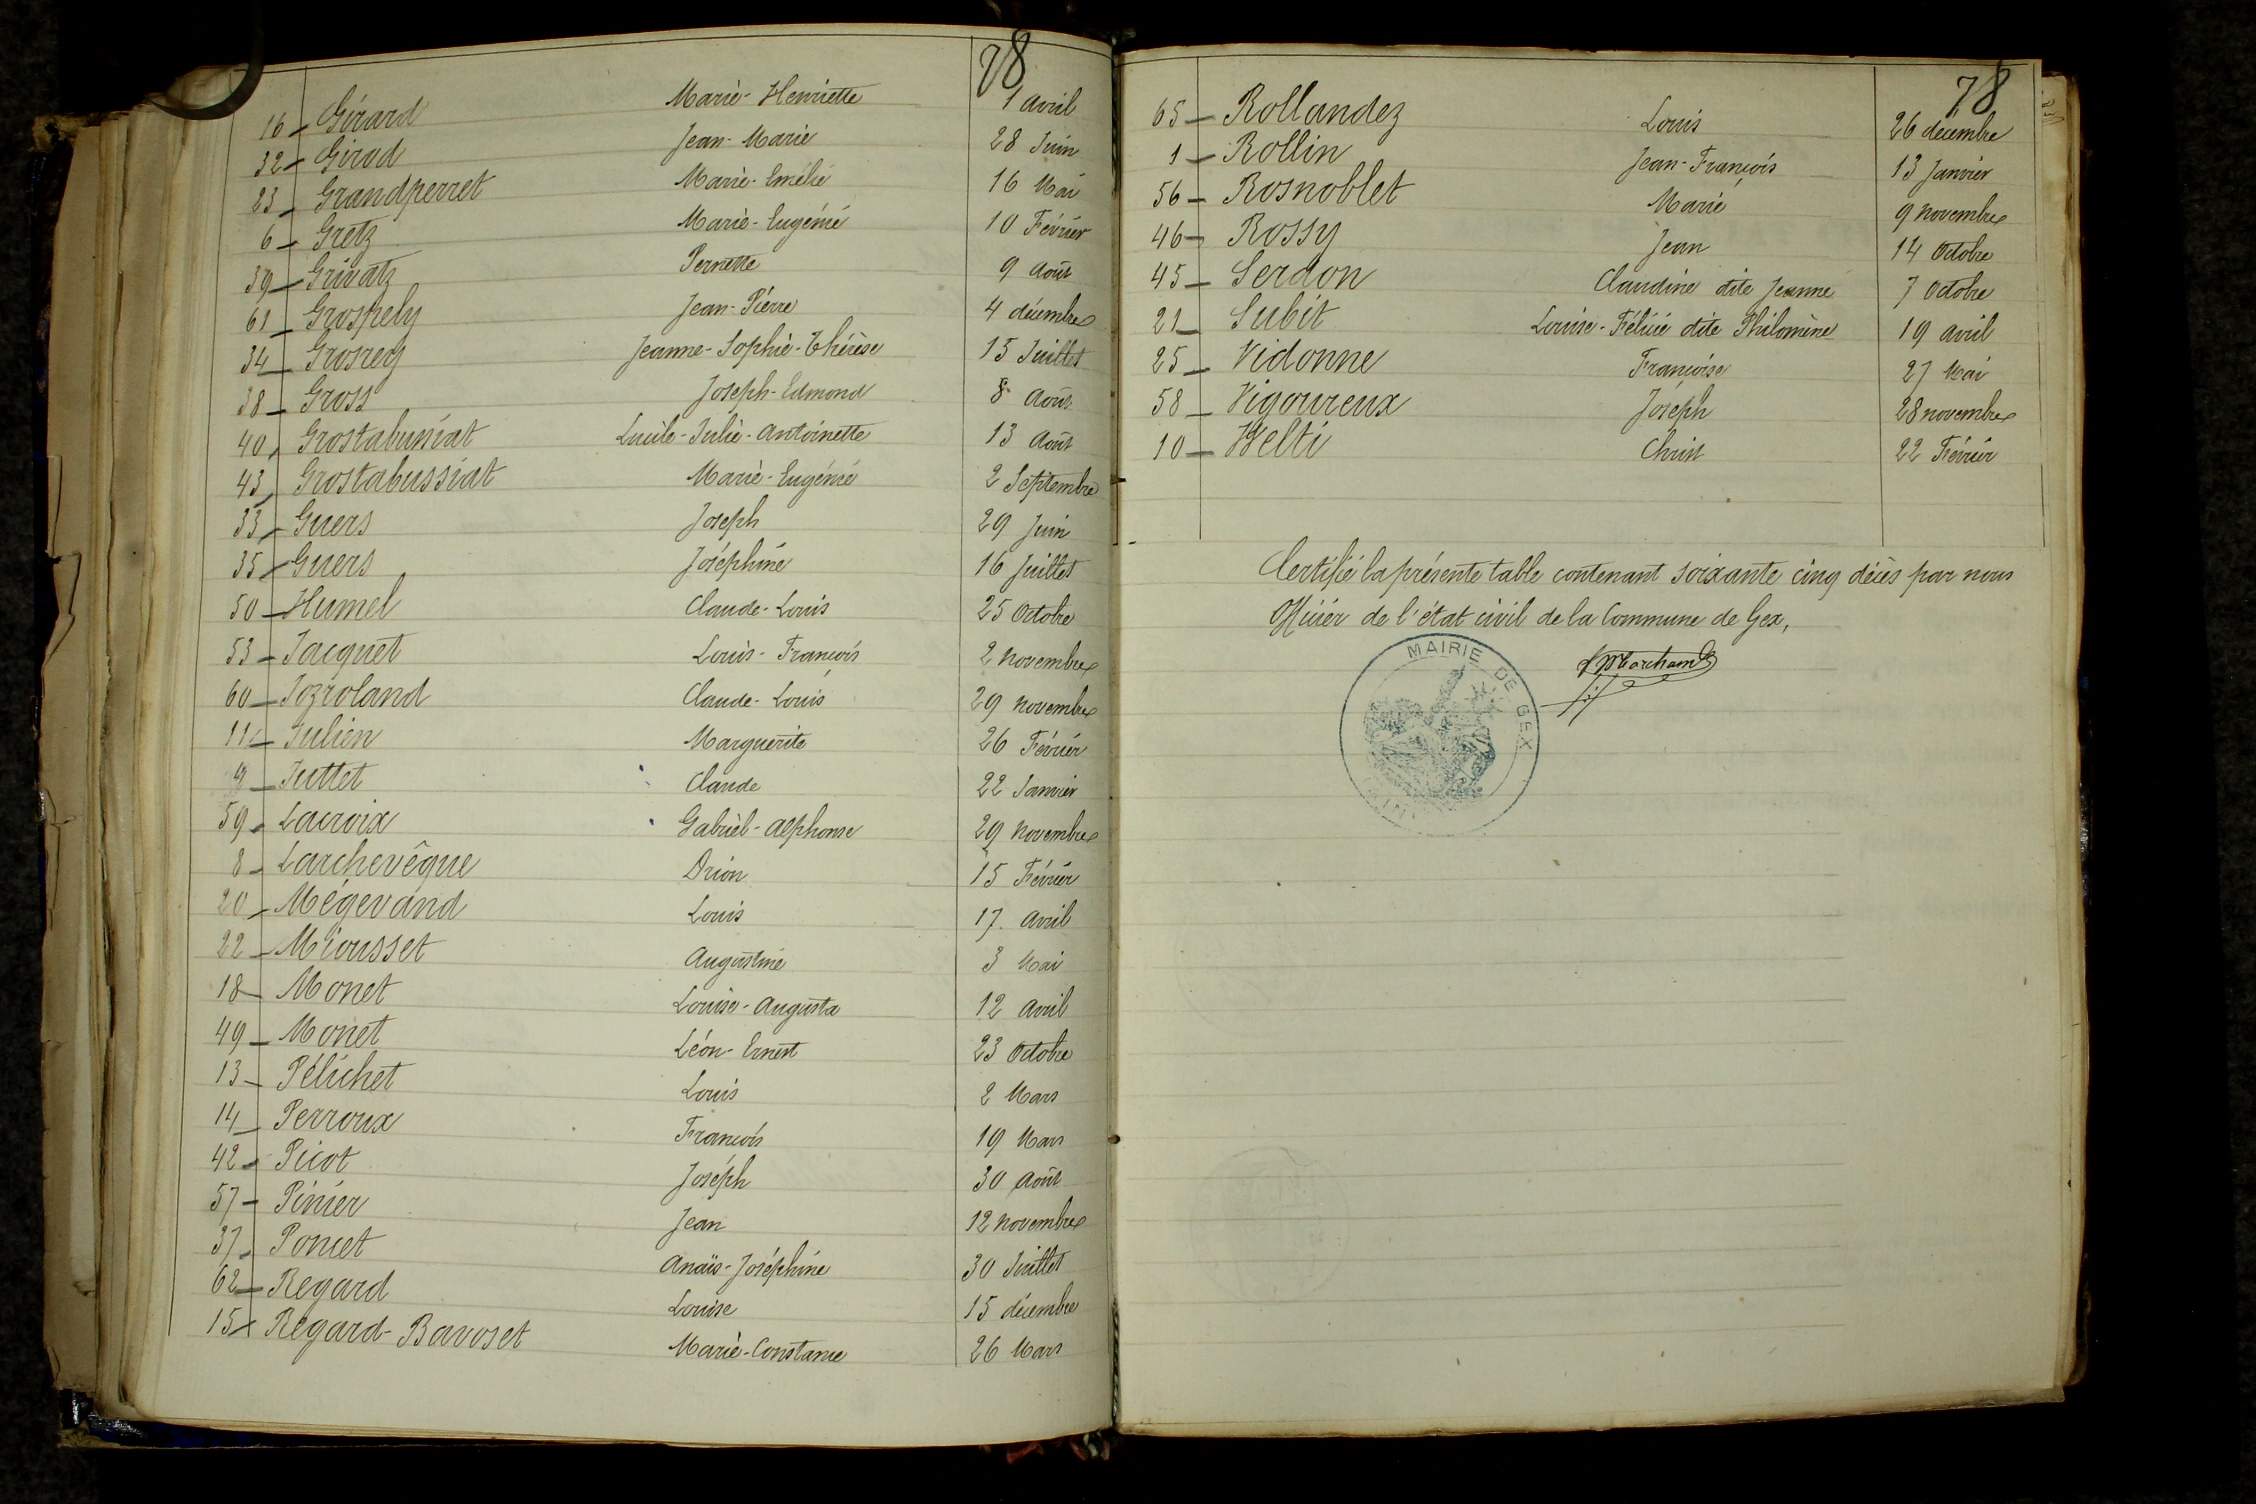 28
16 Girard Marie-Henriette 1 avril
32 Girod Jean-Marie 28 Juin
23 Grandperret Marie-Emélie 16 Mai
6 Gretz Marie-Eugénie 10 Février
39 Grivatz Pernette 9 août
61 Grospely Jean-Pierre 4 décembre
34 Grosrey Jeanne-Sophie-Thérèse 15 Juillet
38 Gross Joseph-Edmond 8 août
40 Grostabussiat Lucile-Julie-Antoinette 13 août
43 Grostabussiat Marie-Eugénie 2 Septembre
33 Guers Joseph 29 Juin
35 Guers Joséphine 16 Juillet
50 Humel Claude-Louis 25 Octobre
53 Jacquet Louis-François 2 novembre
60 Jozroland Claude-Louis 29 novembre
11 Julien Marguerite 26 Février
Juttet Claude 22 Janvier
59 Lacroix Gabriel-alphonse 29 novembre
8 Larchevêque Drion 15 Février
20 Mégevand Louis 17 avril
22 Miousset Augustine 3 Mai
18 Monet Louise-Augusta 12 avril
49 Monet Léon-Ernest 23 Octobre
13 Pélichet Louis 2 Mars
14 Perroux François 19 Mars
42 Picot Joseph 30 août
57 Pinier Jean 12 novembre
37 Poncet Anaïs-Joséphine 30 Juillet
62 Regard Louise 15 décembre
15 Regard-Bavoset Marie-Constance 26 Mars
78
65 Rollandez Louis 26 décembre
1 Rollin Jean-François 13 Janvier
56 Rosnoblet Marie 9 novembre
46 Rossy Jean 14 Octobre
45 Serdon Claudine dite Jeanne 7 Octobre
21 Subit Louise-Félicie dite Philomène 19 avril
25 Vidonne Françoise 27 Mai
58 Vigoureux Joseph 28 novembre
10 Welti Christ 22 Février
Certifié la présente table contenant soixante cinq décès par nous
Officier de l'état civil de la Commune de Gex,
MAIRIE DE GEX